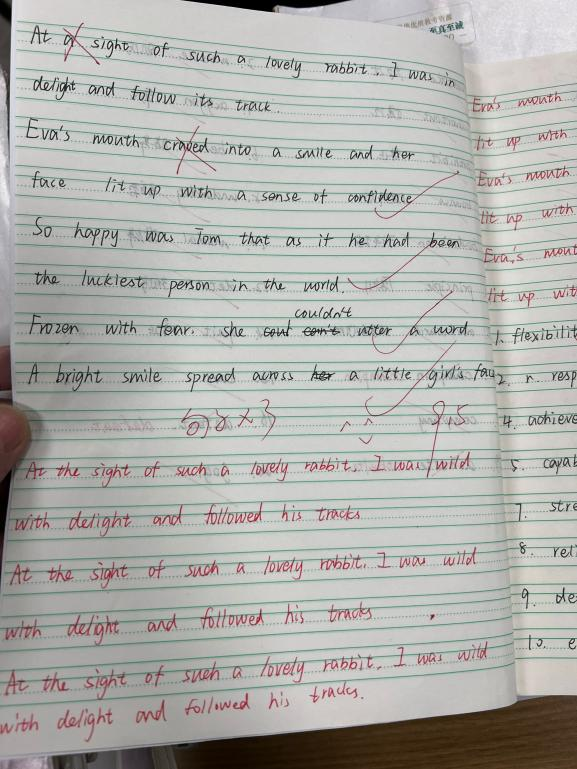 至真至诚
At a sight of such a lovely rabbit. I was in
delight and follow its track.
Eva's mouth craped into a smile and her
face lit up with a sense of confidence
So happy was Tom that as if he had been
the luckiest person in the world.
couldn't
Frozen with fear. she can't utter a word
A bright smile spread across her a little girl's face
句2×3
95
At the sight of such a lovely rabbit, I was wild
with delight and followed his tracks
At the sight of such a lovely rabbit, I was wild
with delight and followed his tracks
At the sight of such a lovely rabbit, I was wild
with delight and followed his tracks.
Eva's mouth
lit up with
Eva's mouth
lit up with
Eva's mout
lit up wit
1. flexibilit
2. n. resp
4. achieve
5. capab
7. stre
8. reli
9. de
10. e